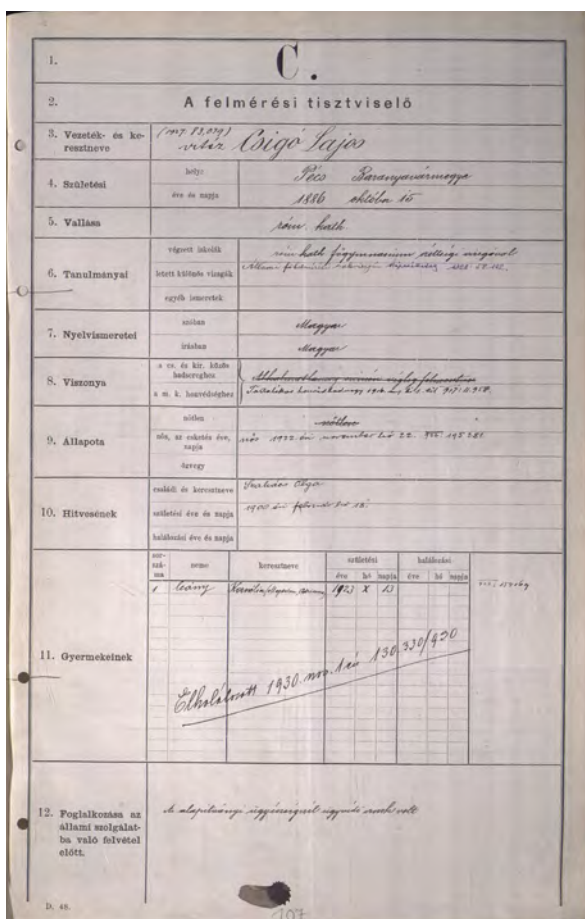 1.
C.
2.
A felmérési tisztviselő
3. Vezeték- és ke-
resztneve
vitéz Csigó Lajos
4. Születési
helye
Pécs Baranyavármegye
éve és napja
1886 október 15
5. Vallása
róm. kath.
6. Tanulmányai
végzett iskolák
róm. kath. főgymnasium érettségi
letett különös vizsgák
egyéb ismeretek
7. Nyelvismeretei
szóban
Magyar
írásban
Magyar
8. Viszonya
a cs. és kir. közös
hadsereghez
a m. k. honvédséghez
9. Állapota
nőtlen
nőtlen
nős, az esketés éve,
napja
nős 1922 év november hó 22.
özvegy
10. Hitvesének
családi és keresztneve
Olga
születési éve és napja
1900 év február hó 12.
halálozási éve és napja
11. Gyermekeinek
sor-
szá-
ma
neme
keresztneve
születési
halálozási
éve hó napja
éve hó napja
1 leány
1923 X 13
Elhalálozott 1930. nov. 1 én 130.330/930
12. Foglalkozása az
állami szolgálat-
ba való felvétel
előtt.
volt
D. 48.
107